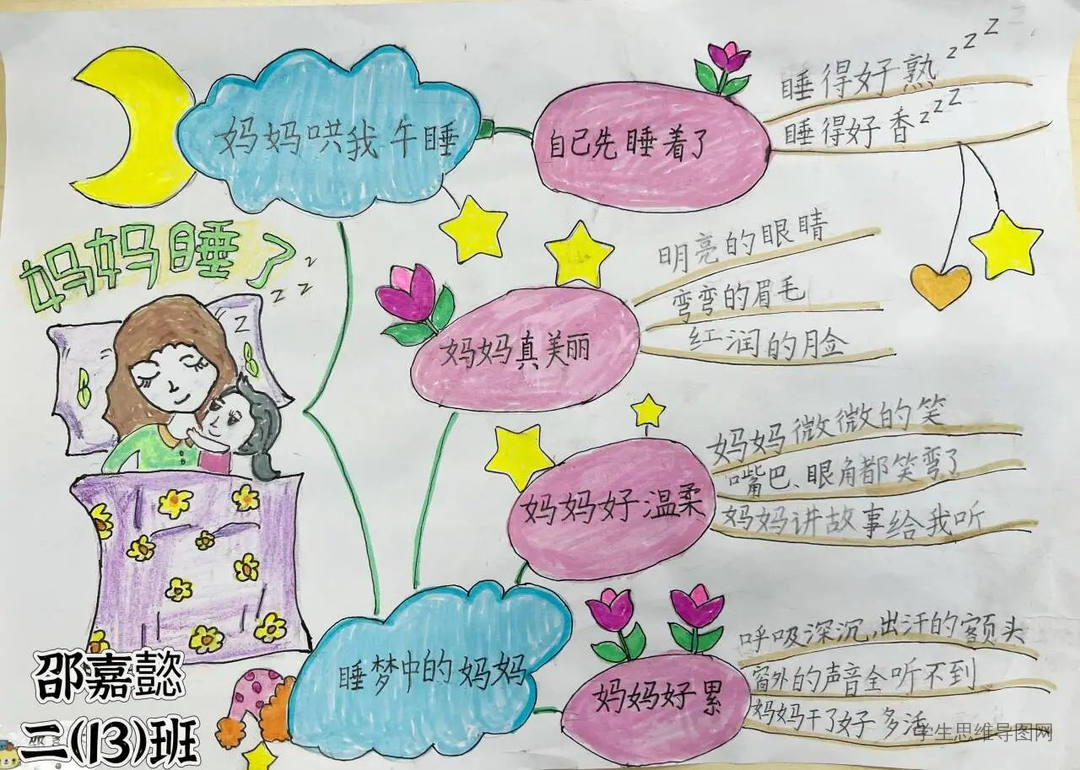 妈妈睡了
z z z
妈妈哄我午睡
自己先睡着了
睡得好熟zzz
睡得好香zzz
睡梦中的妈妈
妈妈真美丽
明亮的眼睛
弯弯的眉毛
红润的脸
妈妈好温柔
妈妈微微的笑
嘴巴、眼角都笑弯了
妈妈讲故事给我听
妈妈好累
呼吸深沉,出汗的额头
窗外的声音全听不到
妈妈干了好多活
邵嘉懿
二(13)班
学生思维导图网